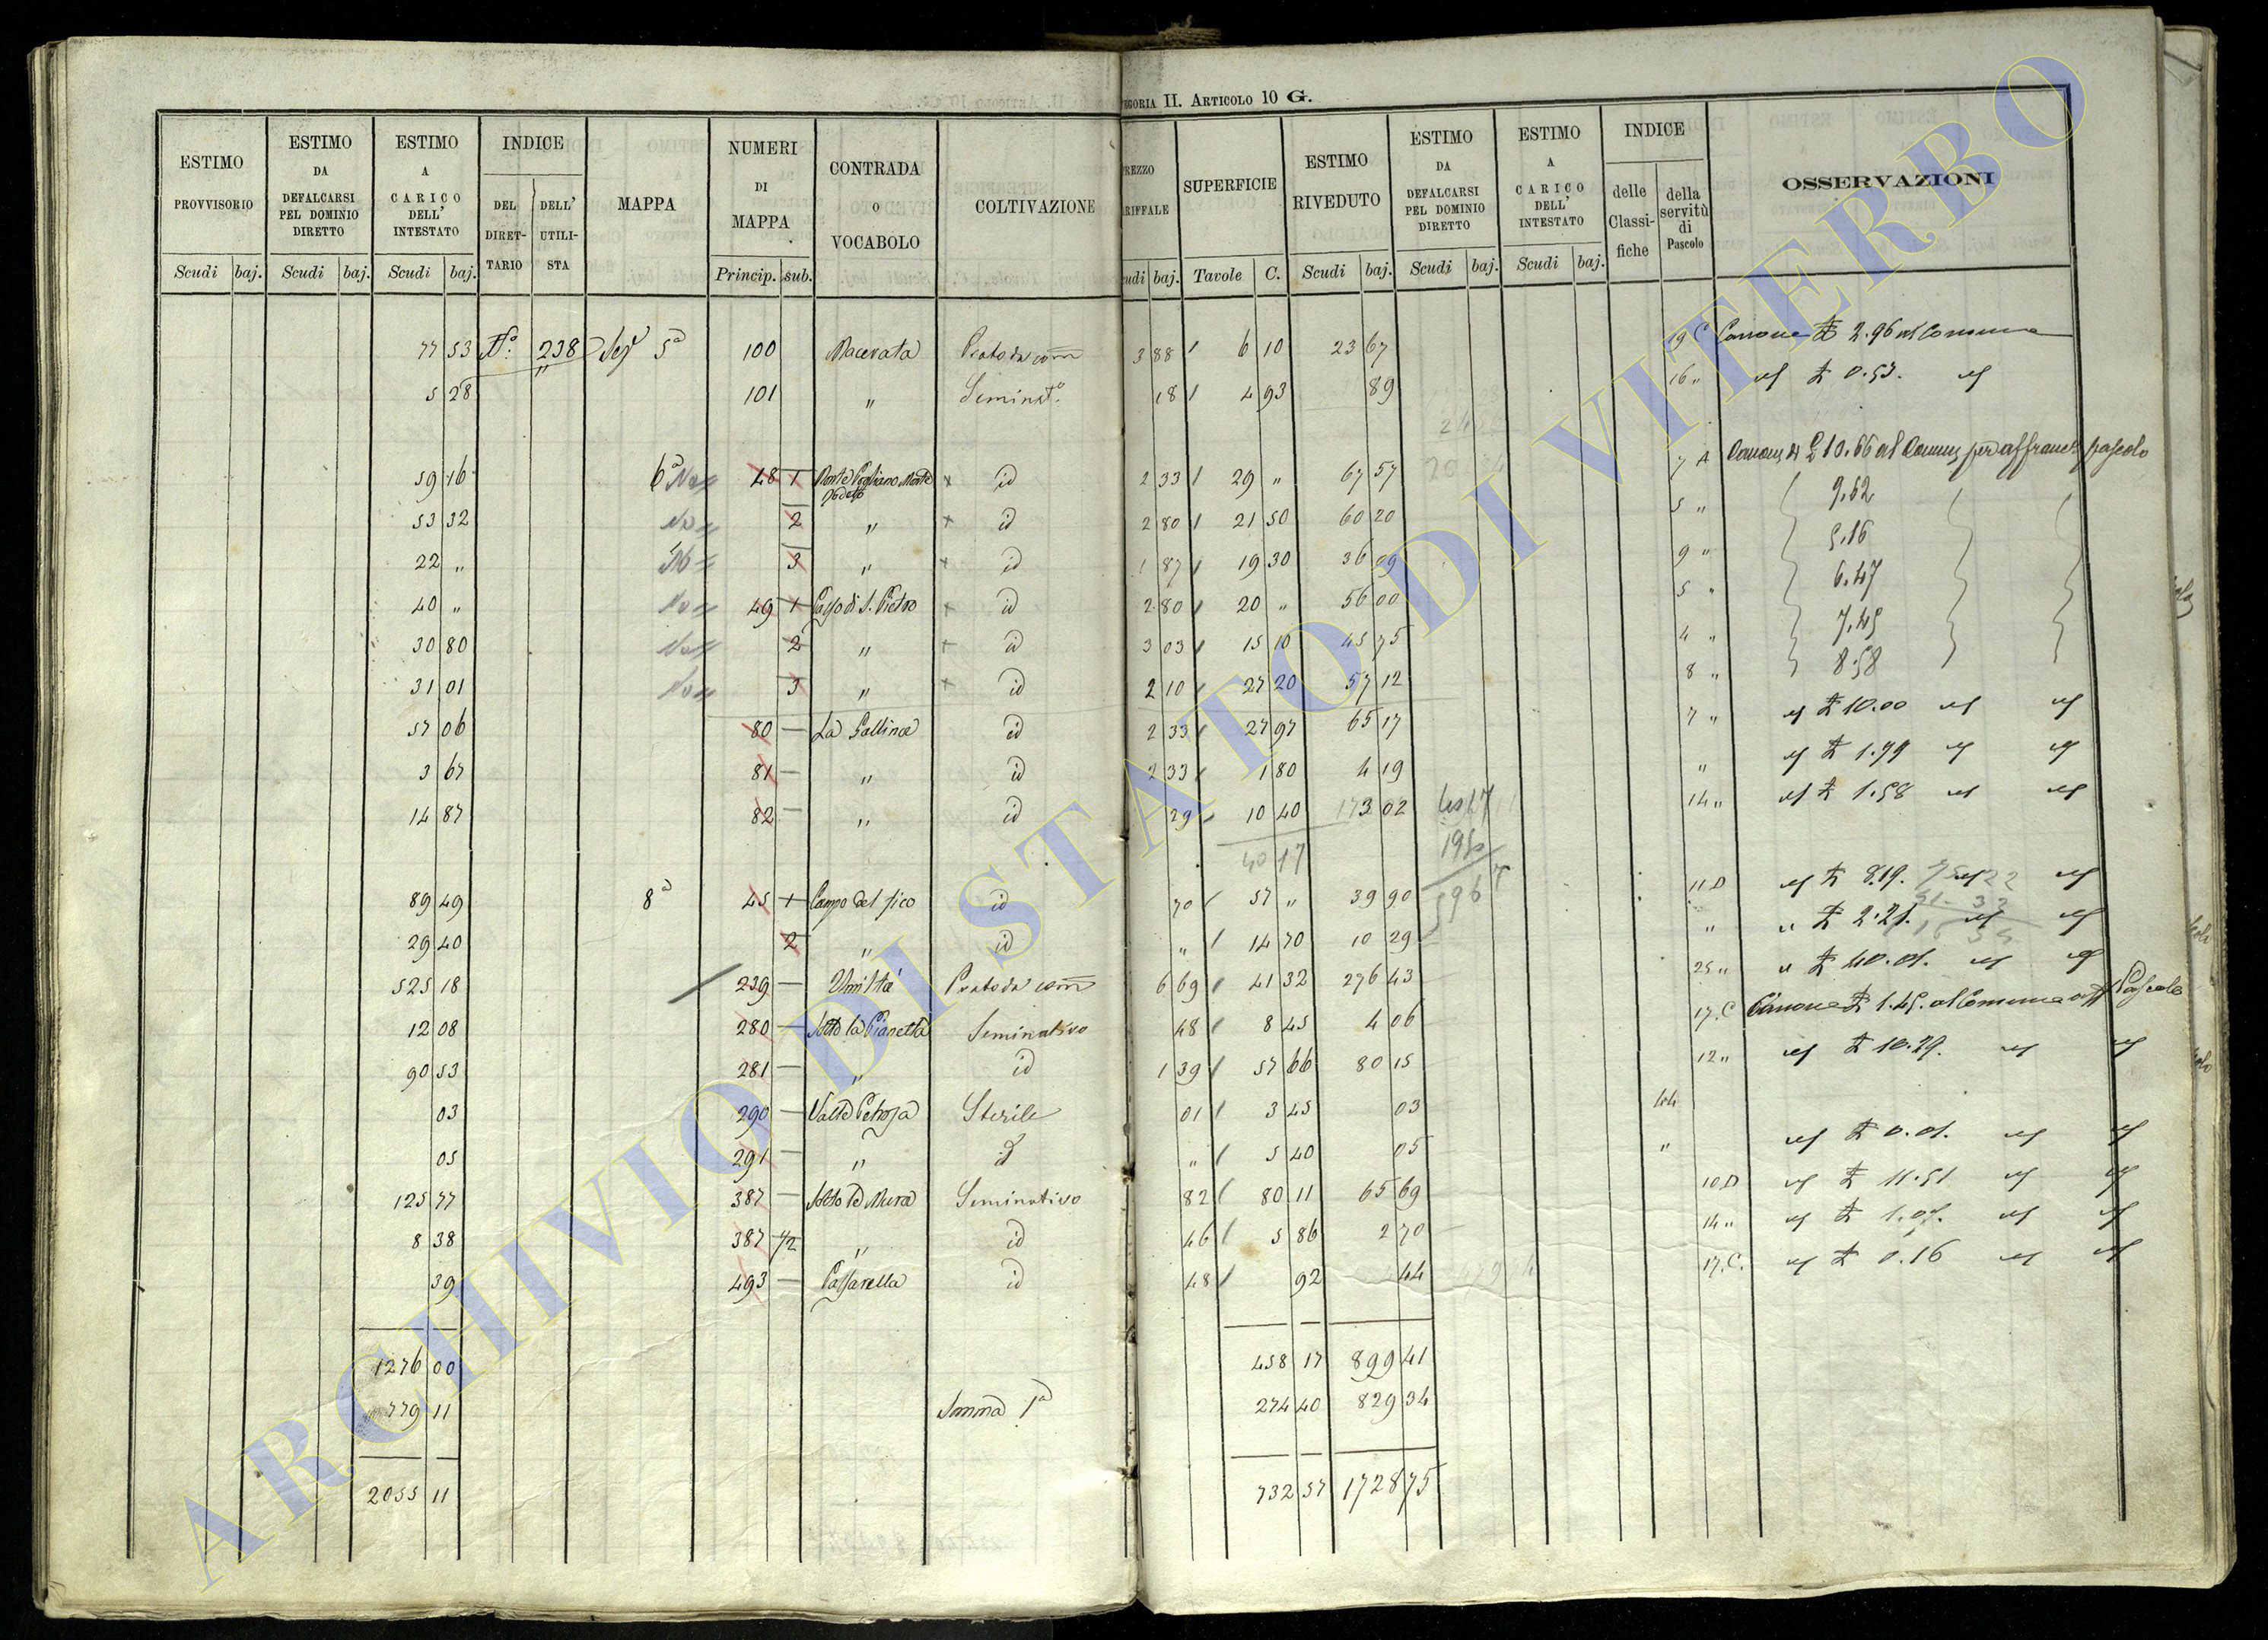 EGORIA II. ARTICOLO 10 G.
ESTIMO PROVVISORIO Scudi baj. ESTIMO DA DEFALCARSI PEL DOMINIO DIRETTO Scudi baj. ESTIMO A CARICO DELL' INTESTATO Scudi baj. INDICE DEL DIRETTARIO DELL' UTILISTA MAPPA NUMERI DI MAPPA Princip. sub. CONTRADA O VOCABOLO COLTIVAZIONE REZZO ARIFFALE udi baj. SUPERFICIE Tavole C. ESTIMO RIVEDUTO Scudi baj. ESTIMO DA DEFALCARSI PEL DOMINIO DIRETTO Scudi baj. ESTIMO A CARICO DELL' INTESTATO Scudi baj. INDICE delle Classifiche della servitù di Pascolo OSSERVAZIONI
77 53 N.° 238 Sez.e 5a 100 Macerata Prato da com 3 88 6 10 23 67 19 C Canone 2.96 al Comune
5 28 101 " Seminat.o 18 4 93 89 16 " 0.53.
59 16 6a No 48 1 Monte Fogliano Monte id 2 33 29 " 67 57 7 A Canone di £ 10.66 al Comune per affranc. pascolo
53 32 2 " id 2 80 21 50 60 20 5 " 9.52
22 " 3 " id 1 87 19 30 36 09 9 " 5.16
40 " 49 1 Passo di S. Pietro id 2 80 20 " 56 00 5 " 6.47
30 80 2 " id 3 03 15 10 45 75 4 " 7.45
31 01 3 " id 2 10 27 20 57 12 8 " 8.58
57 06 80 La Gallina id 2 33 27 97 65 17 7 " 10.00
3 67 81 " id 2 33 1 80 4 19 " 1.79
14 87 82 " id 29 10 40 3 02 14 " 1.58
40 17
89 49 8a 45 1 Campo del fico id 70 57 " 39 90 11 D 8.19.
29 40 2 " id " 14 70 10 29 " " 2.21.
525 18 239 Umiltà Prato da com 6 69 41 32 276 43 25 " " 40.01.
12 08 280 Sotto la Pianetta Seminativo 48 8 45 4 06 17. C Canone 1.45. al Comune aff. Pascolo
90 53 281 " id 1 39 57 66 80 15 12 " 10.29.
03 290 Valle Petrosa Sterile 01 3 45 03 44
05 291 " id " 5 40 05 " 0.01.
125 77 387 Sotto le Mura Seminativo 82 80 11 65 69 10 D 11.51
8 38 387 1/2 " id 46 5 86 2 70 14 " 1.07.
39 493 Passarella id 48 92 44 17. C. 0.16
1276 00 458 17 899 41
779 11 Somma 1a 274 40 829 34
2055 11 732 57 1728 75
ARCHIVIO DI STATO DI VITERBO